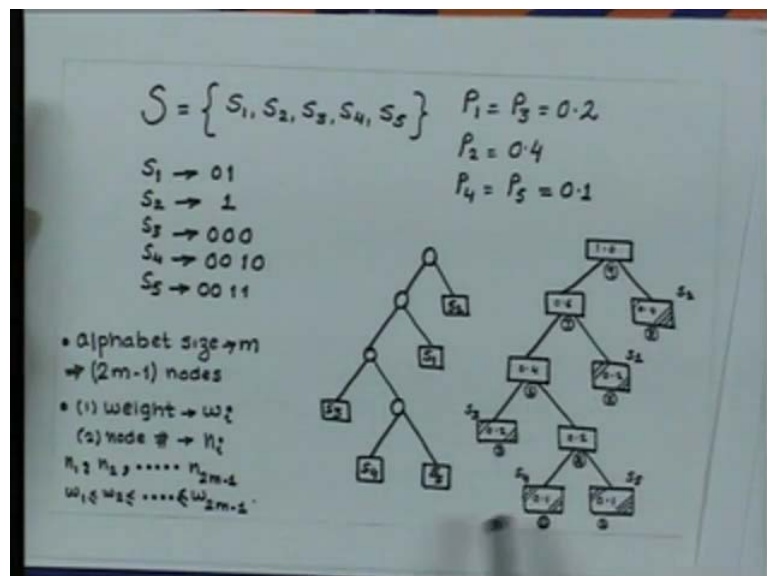 S = { S1, S2, S3, S4, S5 }
P1 = P3 = 0.2
P2 = 0.4
P4 = P5 = 0.1
S1 → 01
S2 → 1
S3 → 000
S4 → 0010
S5 → 0011
• alphabet size → m
⇒ (2m-1) nodes
• (1) weight → wi
(2) node # → ni
n1, n2, ..... n2m-1
w1 ≤ w2 ≤ ..... ≤ w2m-1.
S2
S1
S3
S4
S5
1.0
S2
0.6
0.4
S1
0.4
0.2
S3
0.2
0.2
S4
S5
0.1
0.1